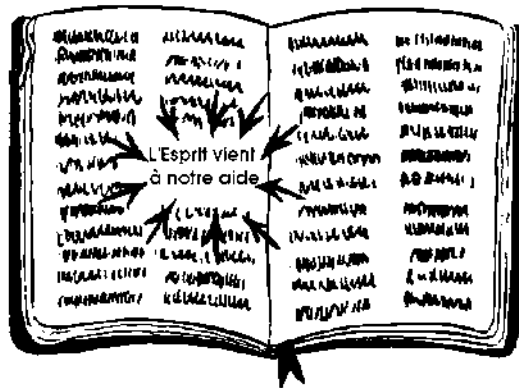 L'Esprit vient
à notre aide